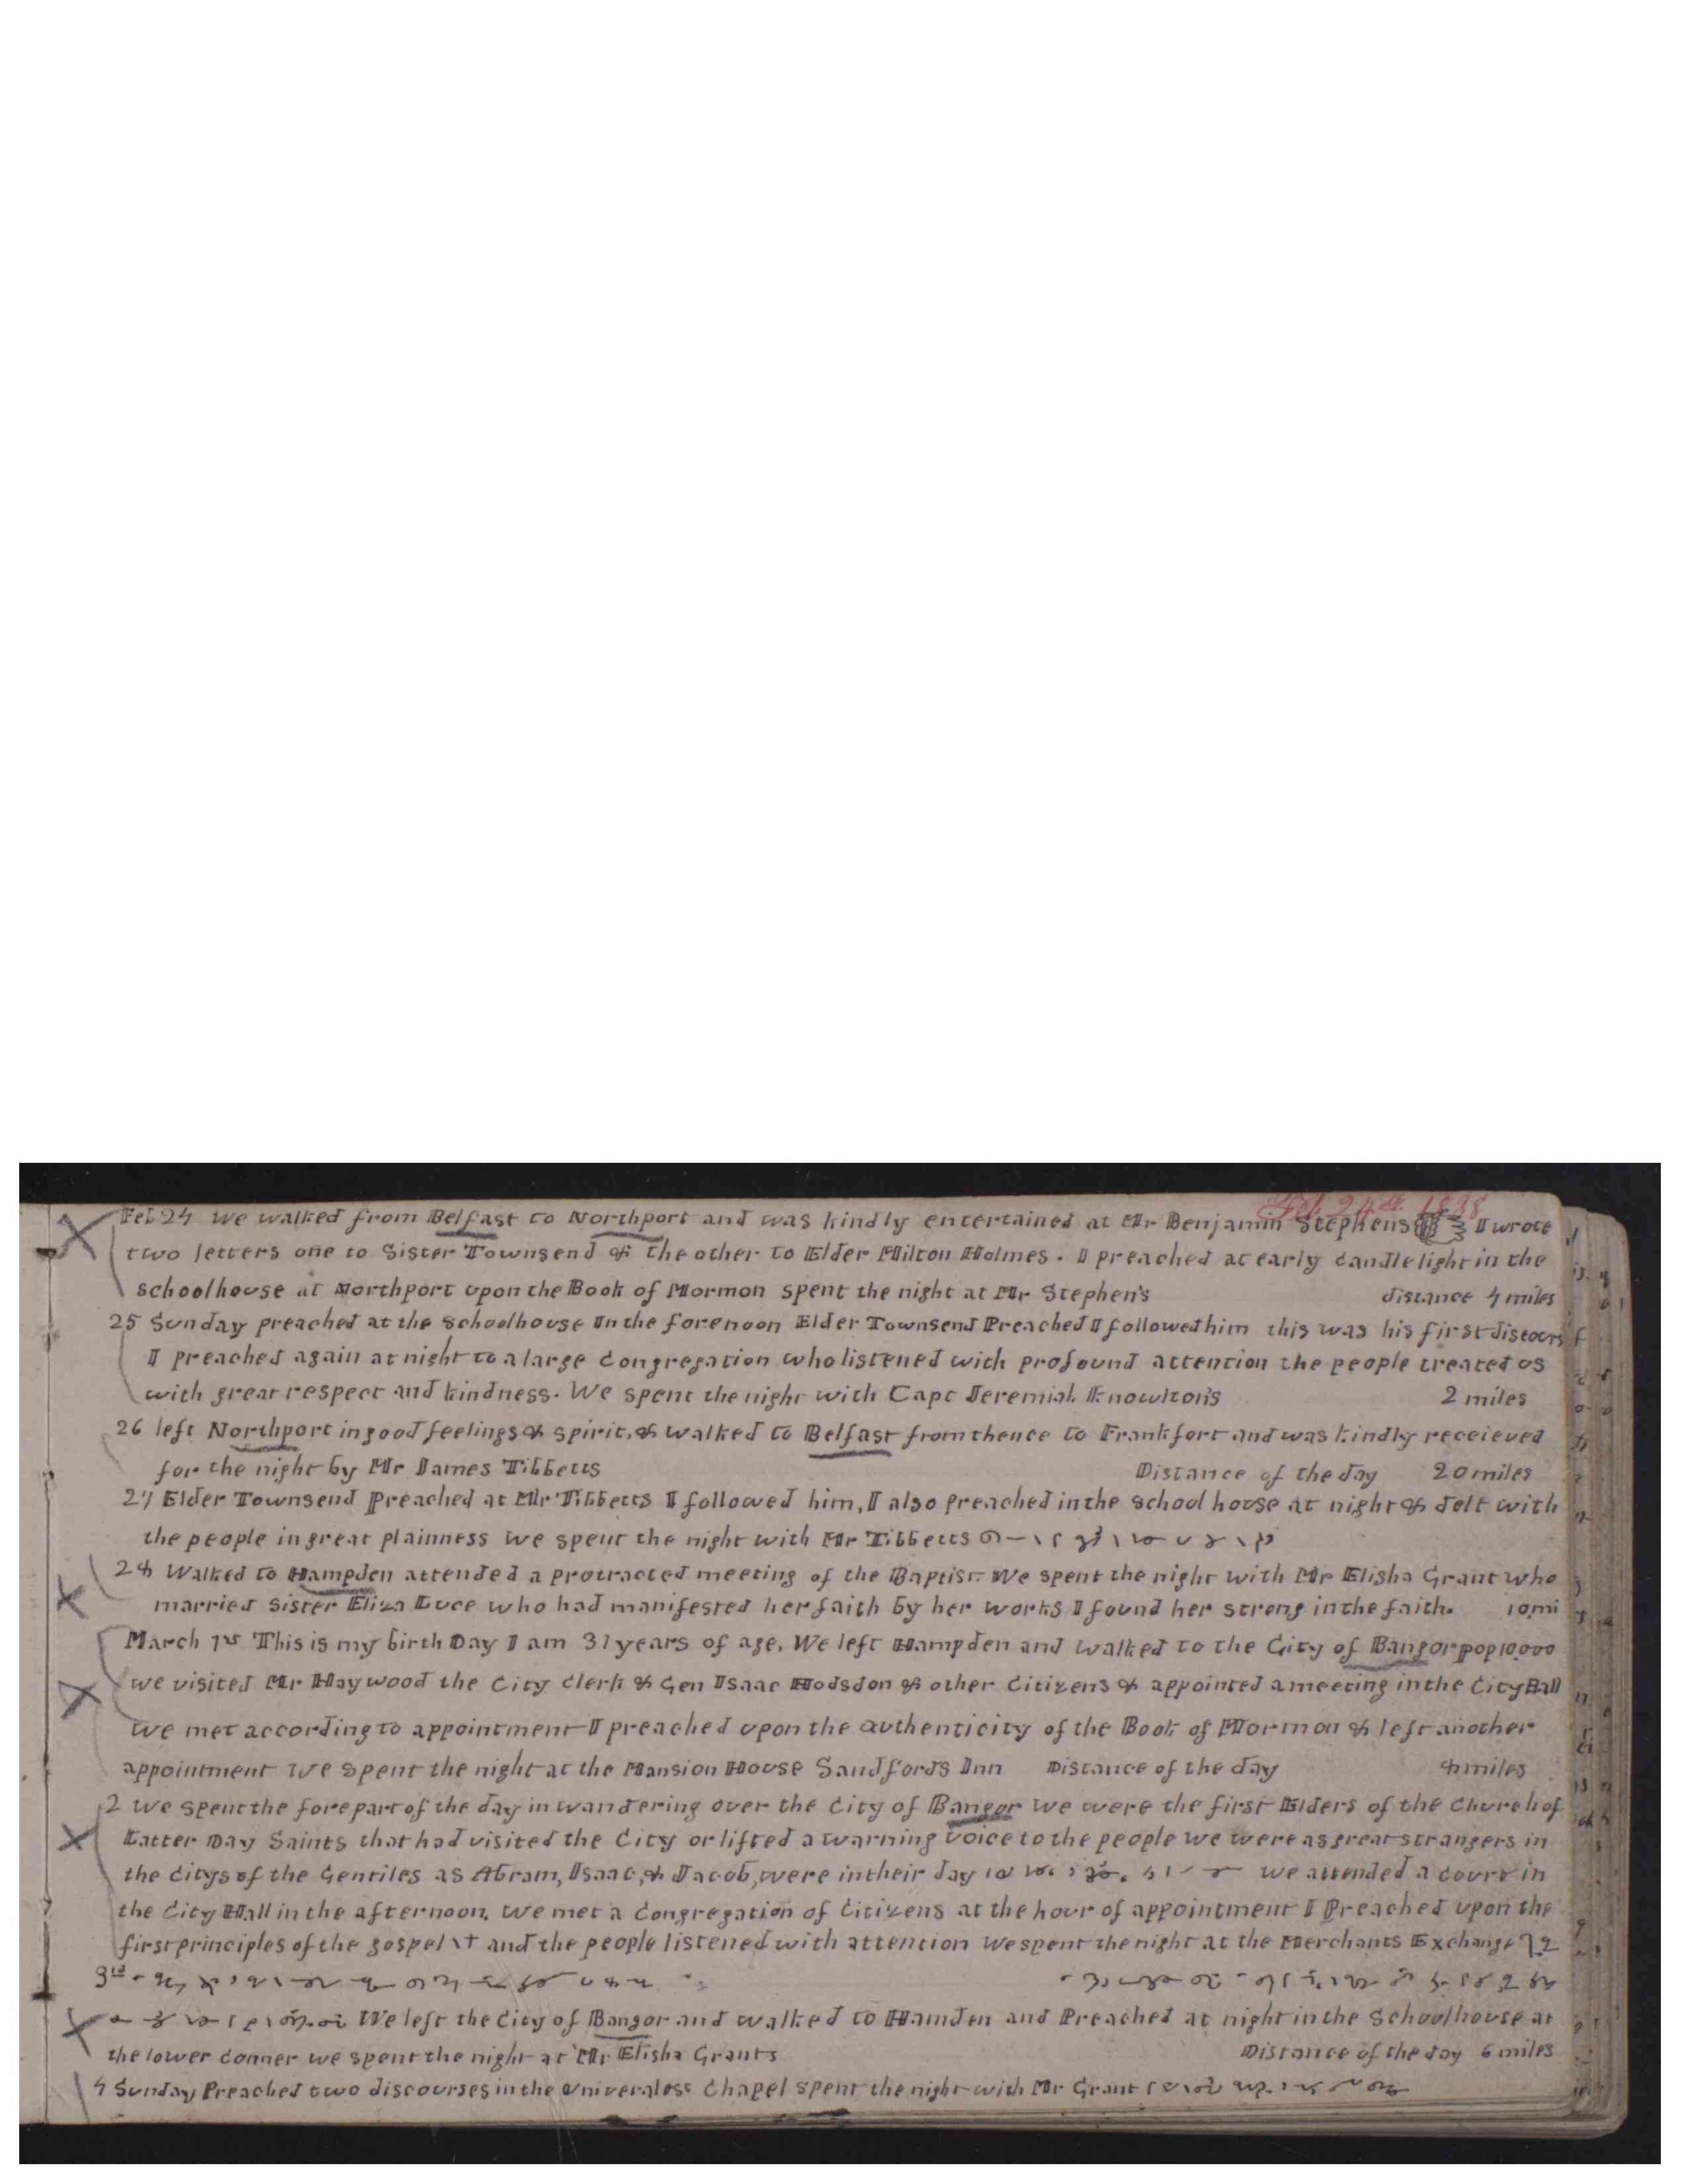 Feb. 24th 1838
Feb 24 We walked from Belfast to Northport and was kindly entertained at Mr Benjamin Stephens I wrote
two letters one to Sister Townsend & the other to Elder Milton Holmes. I preached at early candlelight in the
schoolhouse at Northport upon the Book of Mormon spent the night at Mr Stephen's distance 4 miles
25 Sunday preached at the schoolhouse In the forenoon Elder Townsend Preached I followed him this was his first discours
I preached again at night to a large Congregation who listened with profound attention the people treated us
with great respect and kindness. We spent the night with Capt Jeremiah Knowlton's 2 miles
26 left Northport in good feelings & spirit, & walked to Belfast from thence to Frankfort and was kindly receieved
for the night by Mr James Tibbetts Distance of the day 20 miles
27 Elder Townsend preached at Mr Tibbetts I followed him, I also preached in the school house at night & delt with
the people in great plainness we spent the night with Mr Tibbetts
28 Walked to Hampden attended a protracted meeting of the Baptist. We spent the night with Mr Elisha Grant who
married Sister Eliza Luce who had manifested her faith by her works I found her strong in the faith. 10 mi
March 1st This is my birth Day I am 31 years of age. We left Hampden and walked to the City of Bangor pop 10.000
we visited Mr Haywood the City Clerk & Gen Isaac Hodsdon & other Citizens & appointed a meeting in the City Hall
We met according to appointment I preached upon the authenticity of the Book of Mormon & left another
appointment We spent the night at the Mansion House Sandfords Inn Distance of the day miles
2 We spent the forepart of the day in wandering over the City of Bangor We were the first Elders of the Church of
Latter Day Saints that had visited the City or lifted a warning voice to the people we were as great strangers in
the Citys of the Gentiles as Abram, Isaac, & Jacob, were in their day we attended a court in
the City Hall in the afternoon. We met a Congregation of Citizens at the hour of appointment I Preached upon the
first principles of the gospel and the people listened with attention We spent the night at the Merchants Exchange
3rd
We left the City of Bangor and walked to Hamden and Preached at night in the Schoolhouse at
the lower conner we spent the night at Mr Elisha Grants Distance of the day 6 miles
4 Sunday Preached two discourses in the Chapel spent the night with Mr Grant